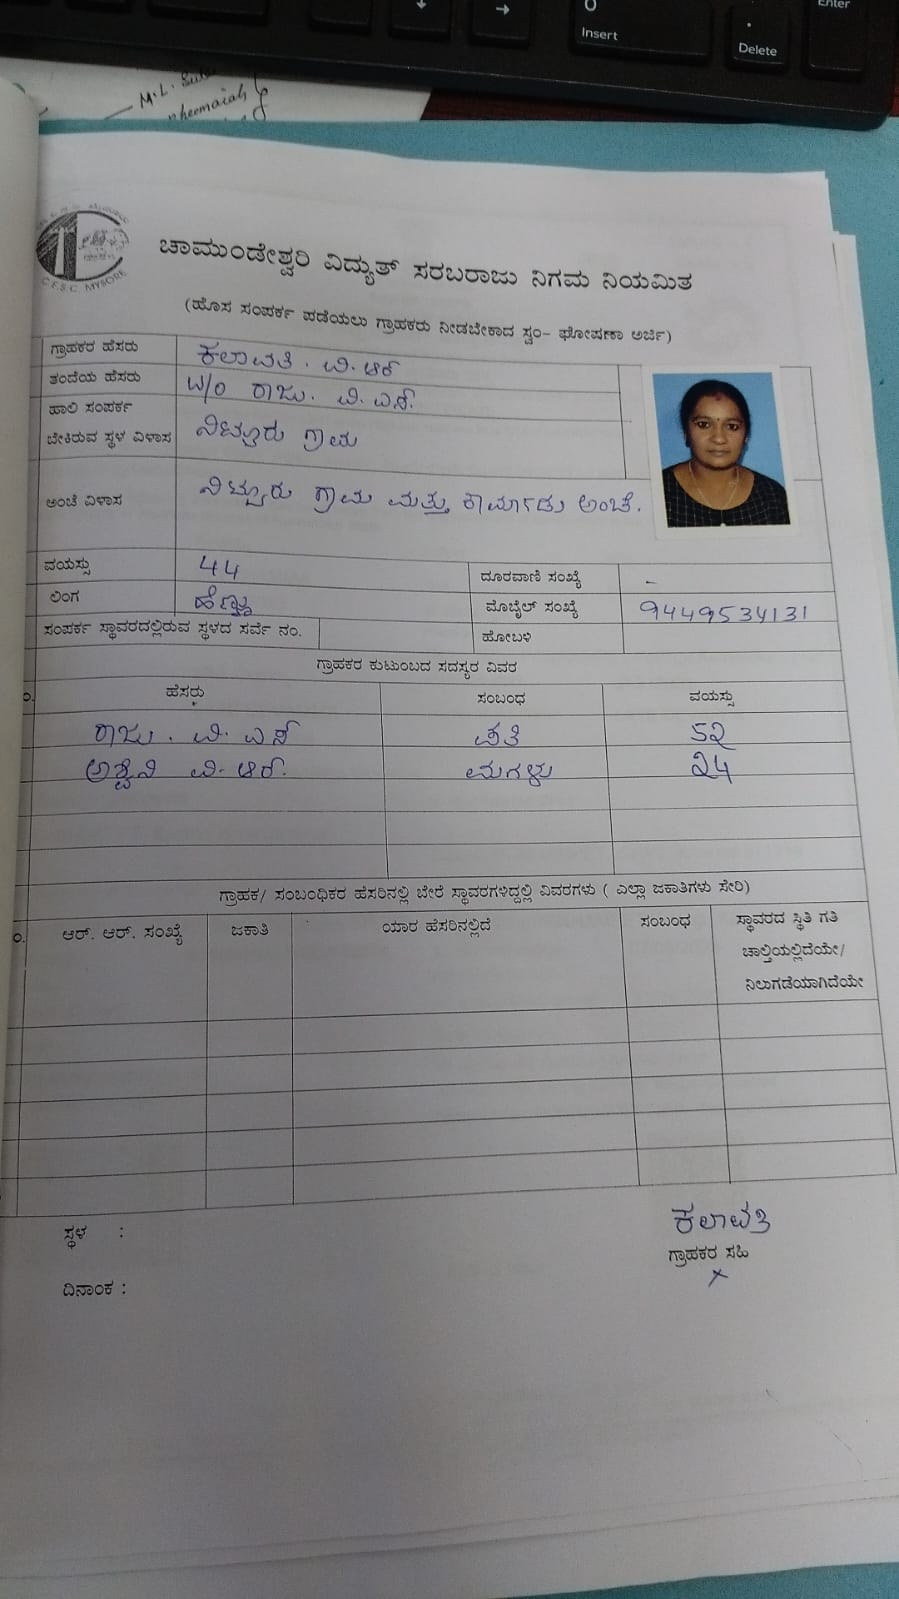 Enter
Insert
Delete
M.L.
C.E.S.C. MYSORE
ಚಾಮುಂಡೇಶ್ವರಿ ವಿದ್ಯುತ್ ಸರಬರಾಜು ನಿಗಮ ನಿಯಮಿತ
(ಹೊಸ ಸಂಪರ್ಕ ಪಡೆಯಲು ಗ್ರಾಹಕರು ನೀಡಬೇಕಾದ ಸ್ವಂ- ಘೋಷಣಾ ಅರ್ಜಿ)
ಗ್ರಾಹಕರ ಹೆಸರು ಕಲಾವತಿ. ವಿ. ಆರ್
ತಂದೆಯ ಹೆಸರು W/O ರಾಜು. ವಿ. ಎಸ್.
ಹಾಲಿ ಸಂಪರ್ಕ
ಬೇಕಿರುವ ಸ್ಥಳ ವಿಳಾಸ ನಿಟ್ಟೂರು ಗ್ರಾಮ
ಅಂಚೆ ವಿಳಾಸ ನಿಟ್ಟೂರು ಗ್ರಾಮ ಮತ್ತು ಕಾರ್ಮಾಡು ಅಂಚೆ.
ವಯಸ್ಸು 44 ದೂರವಾಣಿ ಸಂಖ್ಯೆ -
ಲಿಂಗ ಹೆಣ್ಣು ಮೊಬೈಲ್ ಸಂಖ್ಯೆ 9449534131
ಸಂಪರ್ಕ ಸ್ಥಾವರದಲ್ಲಿರುವ ಸ್ಥಳದ ಸರ್ವೆ ನಂ. ಹೋಬಳಿ
ಗ್ರಾಹಕರ ಕುಟುಂಬದ ಸದಸ್ಯರ ವಿವರ
ಹೆಸರು ಸಂಬಂಧ ವಯಸ್ಸು
ರಾಜು. ವಿ. ಎಸ್ ಪತಿ 52
ಅಶ್ವಿನಿ ವಿ. ಆರ್. ಮಗಳು 24
ಗ್ರಾಹಕ/ ಸಂಬಂಧಿಕರ ಹೆಸರಿನಲ್ಲಿ ಬೇರೆ ಸ್ಥಾವರಗಳಿದ್ದಲ್ಲಿ ವಿವರಗಳು ( ಎಲ್ಲಾ ಜಕಾತಿಗಳು ಸೇರಿ)
ಆರ್. ಆರ್. ಸಂಖ್ಯೆ ಜಕಾತಿ ಯಾರ ಹೆಸರಿನಲ್ಲಿದೆ ಸಂಬಂಧ ಸ್ಥಾವರದ ಸ್ಥಿತಿ ಗತಿ
ಚಾಲ್ತಿಯಲ್ಲಿದೆಯೇ/
ನಿಲುಗಡೆಯಾಗಿದೆಯೇ
ಕಲಾವತಿ
ಸ್ಥಳ : ಗ್ರಾಹಕರ ಸಹಿ
ದಿನಾಂಕ :